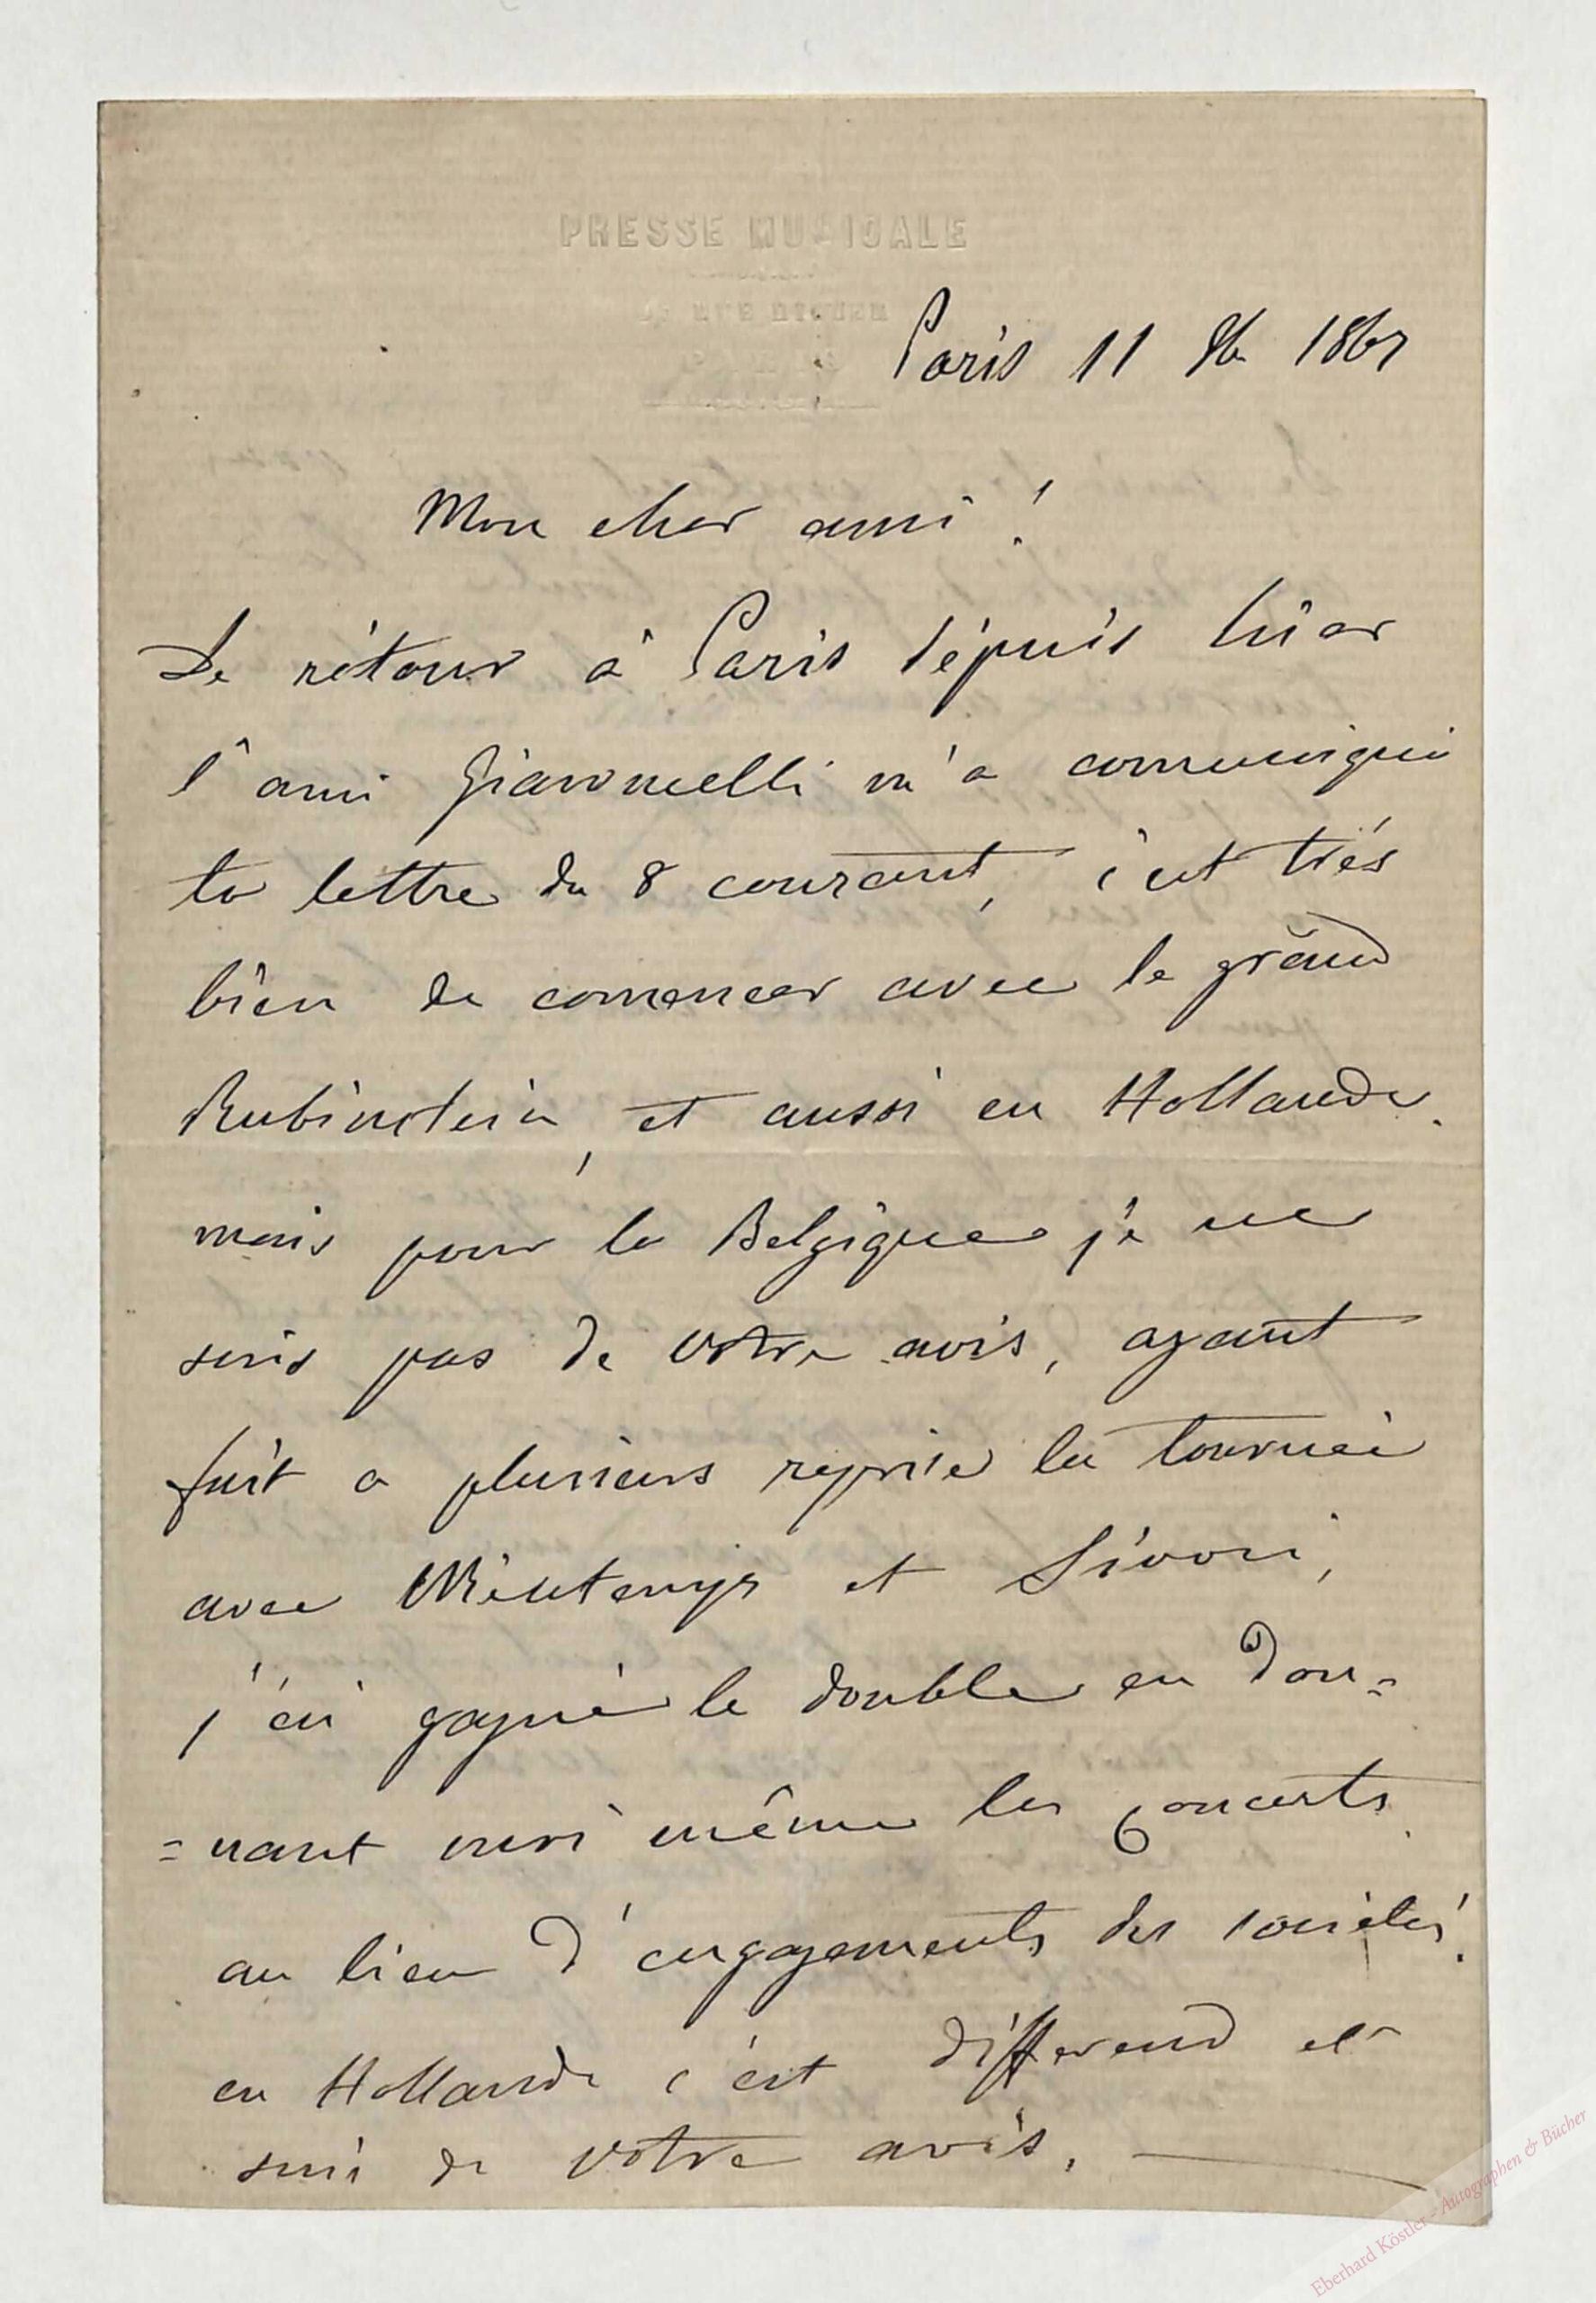 PRESSE MUSICALE
PARIS
Paris 11 8b 1867
Mon cher ami!
De rétour à Paris dépuis hier
l'ami Giacomelli m'a comuniqué
ta lettre du 8 courant, c'est trés
bien de comencer avec le grand
Rubinstein, et aussi en Hollande.
mais pour la Belgique je ne
suis pas de votre avis, ayant
fait a plusieurs reprise la tournée
avec Vieutemps et Sivori,
j'ai gagné le double en don=
=nant moi même les concerts
au lieu d'engagements des sociétés.
en Hollande c'est differend et
suis de votre avis. —
Eberhard Köstler - Autographen & Bücher